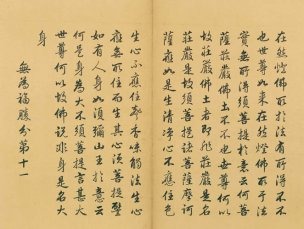 在然燈佛所於法有所得不不
也世尊如來在然燈佛所於法
實無所得須菩提於意云何菩
薩莊嚴佛土不不也世尊何以
故莊嚴佛土者即非莊嚴是名
莊嚴是故須菩提諸菩薩摩訶
薩應如是生清淨心不應住色
生心不應住聲香味觸法生心
應無所住而生其心須菩提譬
如有人身如須彌山王於意云
何是身為大不須菩提言甚大
世尊何以故佛說非身是名大
身
無為福勝分第十一